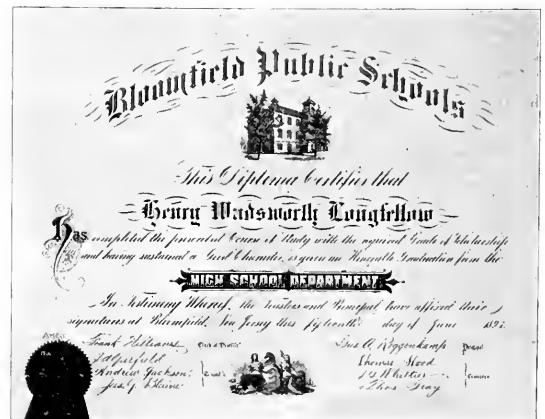 Bloomfield Public Schools
This Diploma Certifies that
Henry Wadsworth Longfellow
Has completed the prescribed Course of Study with the required Grade of Scholarship
and having sustained a Good Character, is given an Honorable Graduation from the
HIGH SCHOOL DEPARTMENT.
In Testimony Whereof, the Trustees and Principal have affixed their
signatures at Bloomfield, New Jersey this fifteenth day of June
Frank
Andrew Jackson
Jas. G. Blaine
Gus A. Roggenkamp
Thomas Hood
J G Whittier
Thos Gray